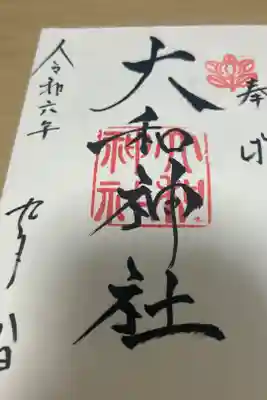 奉拝
大和神社
令和六年
九月八日
大和神社